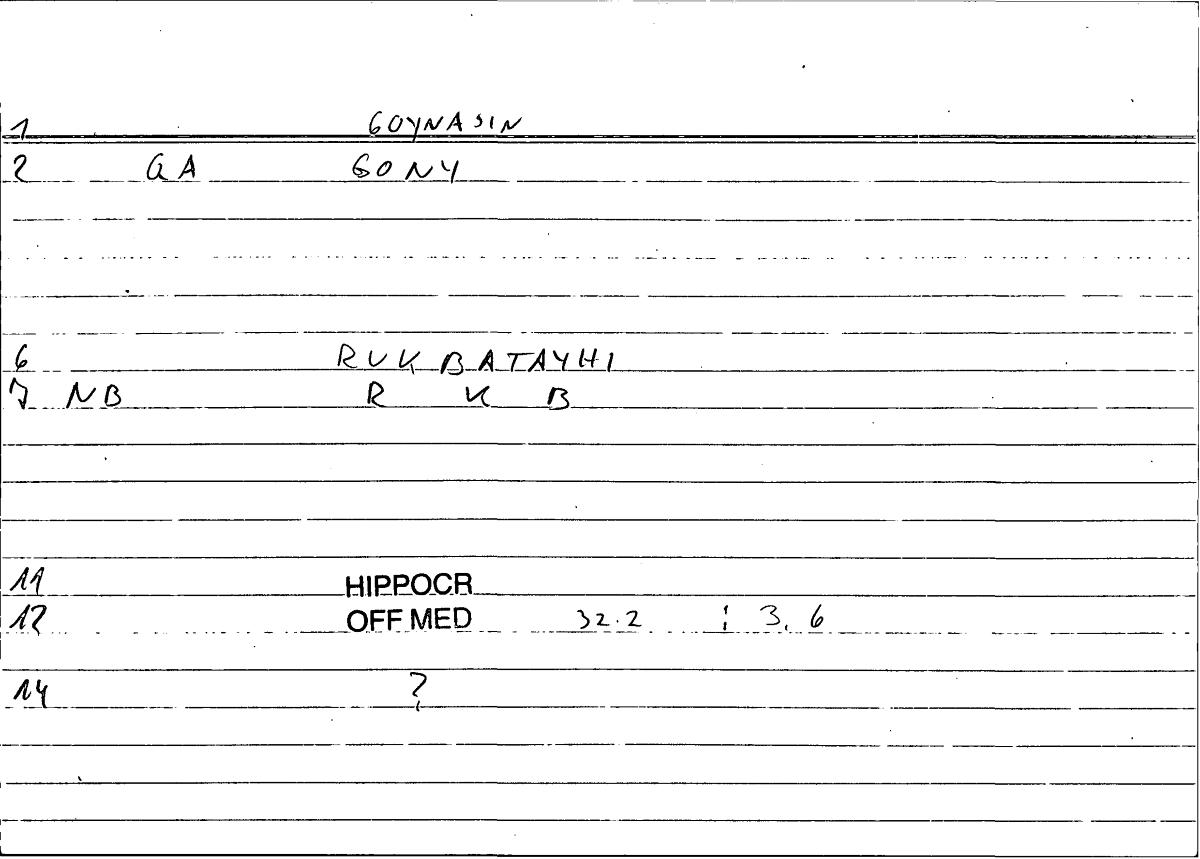 1 GOYNASIN
2 GA GONY
6 RUKBATAYHI
7 NB R K B
11 HIPPOCR
12 OFF MED 32.2 ¦ 3, 6
14 ?